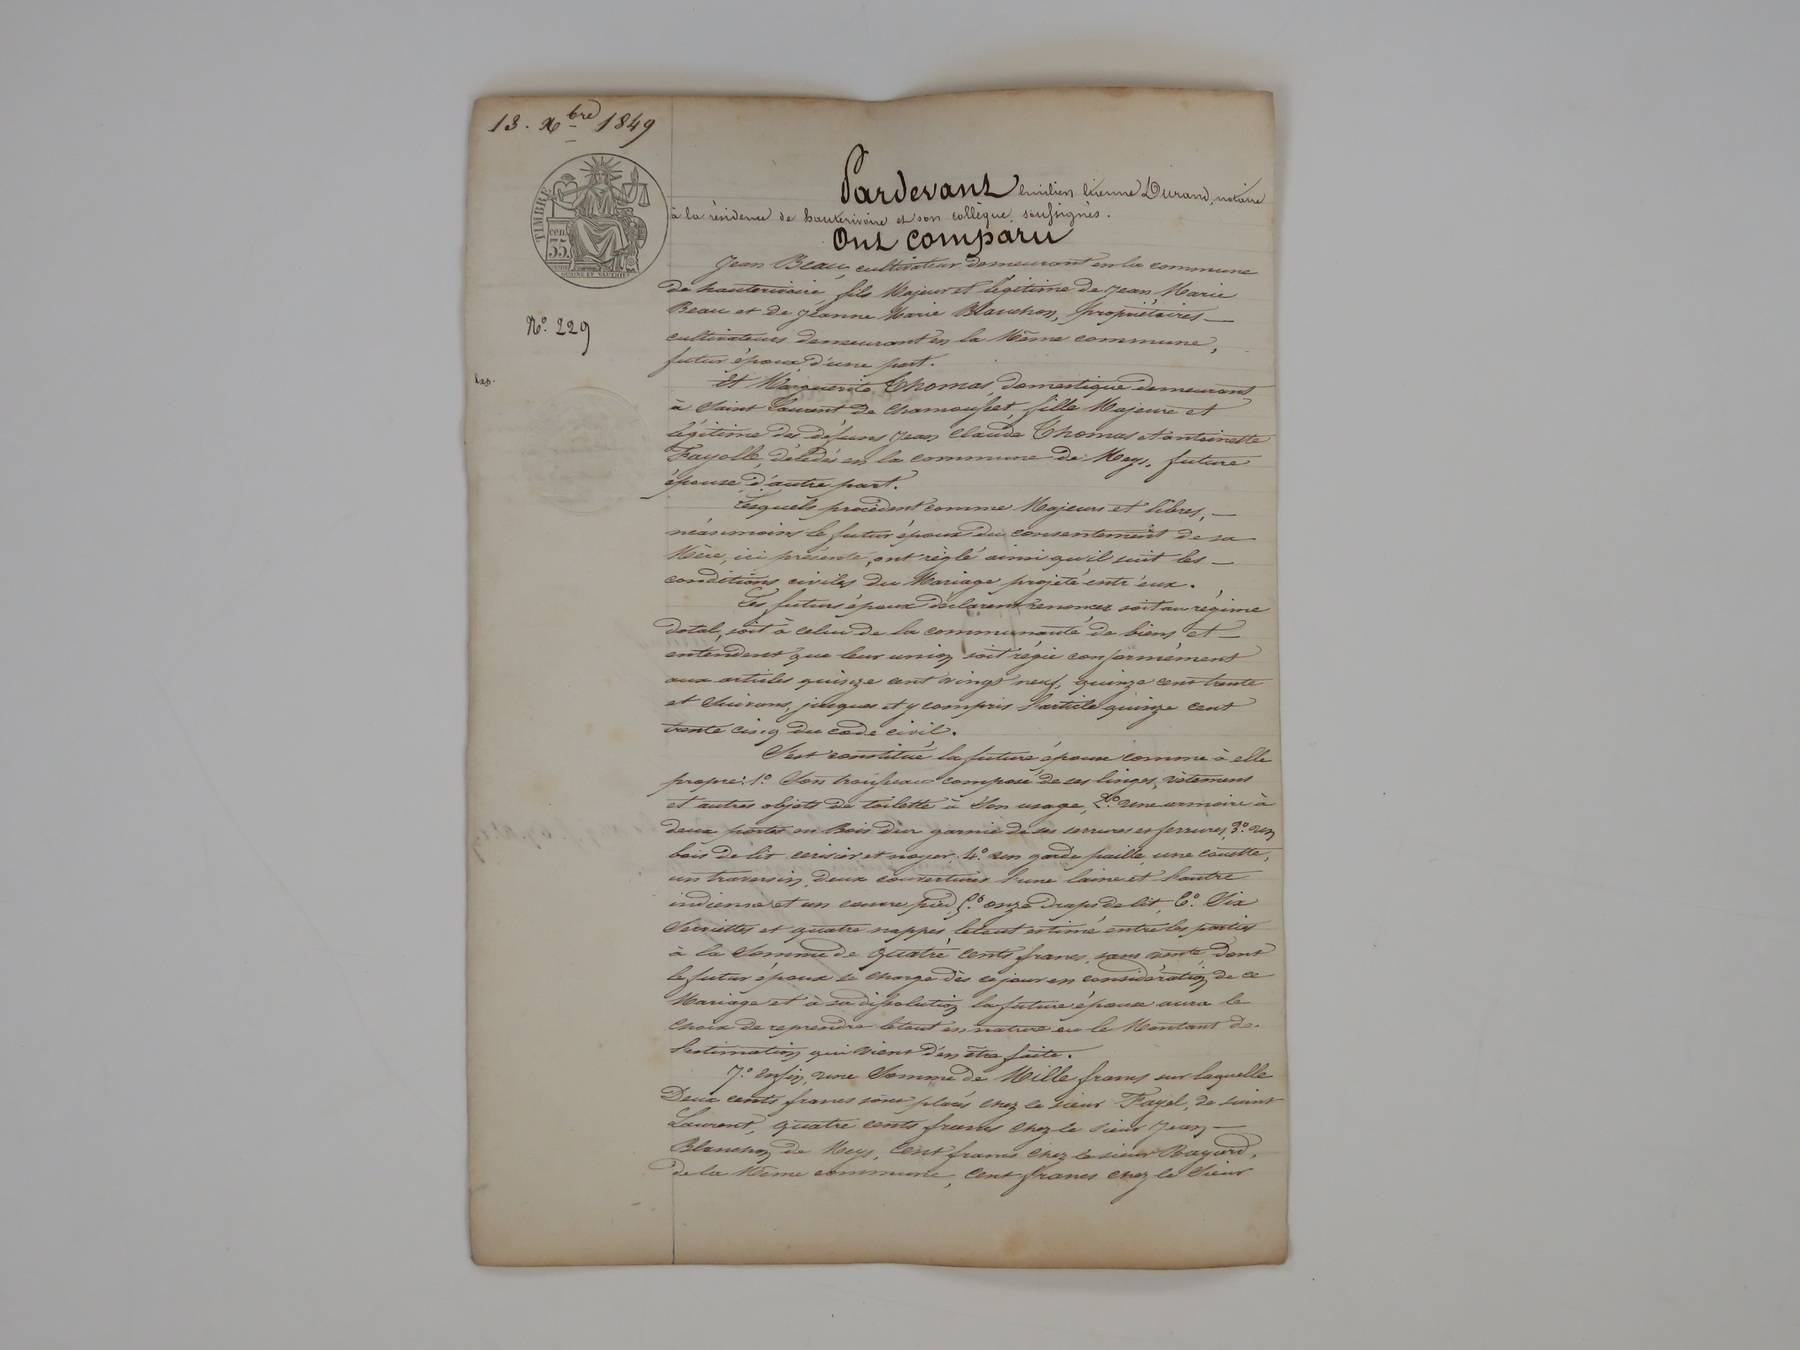 13. Xbre 1849
TIMBRE
cen. 35.
OUDINÉ ET VAUTHIER
N.° 229
Exp.
Pardevant Emilien Etienne Durand, notaire
à la résidence de hauterivoire et son collègue, soussignés.
Ont comparu
Jean Beau, cultivateur demeurant en la commune
de hauterivoire, fils Majeur et légitime de Jean Marie
Beau et de Jeanne Marie Blanchon, propriétaires
cultivateurs demeurant en la Même commune,
futur époux d'une part.
Et Marguerite Thomas, domestique demeurant
à Saint Laurent de Chamousset, fille Majeure et
légitime des défunts Jean Claude Thomas et antoinette
Fayolle, décédés en la commune de Meys, future
épouse d'autre part.
Lesquels procédant comme Majeurs et libres,
néanmoins le futur époux du consentement de sa
Mère, ici présente, ont règlé ainsi qu'il suit les
conditions civiles du Mariage projeté entr'eux.
Les futurs époux déclarent renoncer soit au régime
dotal, soit à celui de la communauté de biens, et
entendent que leur union soit régie conformément
aux articles quinze cent vingt neuf, quinze cent trente
et Suivans, jusques et y compris l'article quinze cent
trente cinq du code civil.
S'est constitué la future épouse comme à elle
propre: 1.° Son trousseau composé de ses linges, vêtemens
et autres objets de toilette à Son usage, 2.° une armoire à
deux portes en Bois dur garnie de ses serrures et ferrures, 3.° un
bois de lit cerisier et noyer, 4.° un garde paille, une couette,
un traversin, deux couvertures l'une laine et l'autre
indienne et un couvre pied, 5.° onze draps de lit, 6.° Six
Serviettes et quatre nappes, le tout estimé entre les parties
à la Somme de quatre cents francs, sans vente, dont
le futur époux se charge dès ce jour en considération de ce
Mariage et à sa dissolution la future épouse aura le
choix de reprendre le tout en nature ou le Montant de
l'estimation qui vient d'en être faite.
7.° Enfin, une Somme de Mille francs sur laquelle
Deux cents francs sont placés chez le sieur Fayel, de saint
Laurent, quatre cents francs chez le sieur Jean
Blanchon, de Meys, Cent francs chez le sieur Bayard,
de la Même commune, Cent francs chez le Sieur